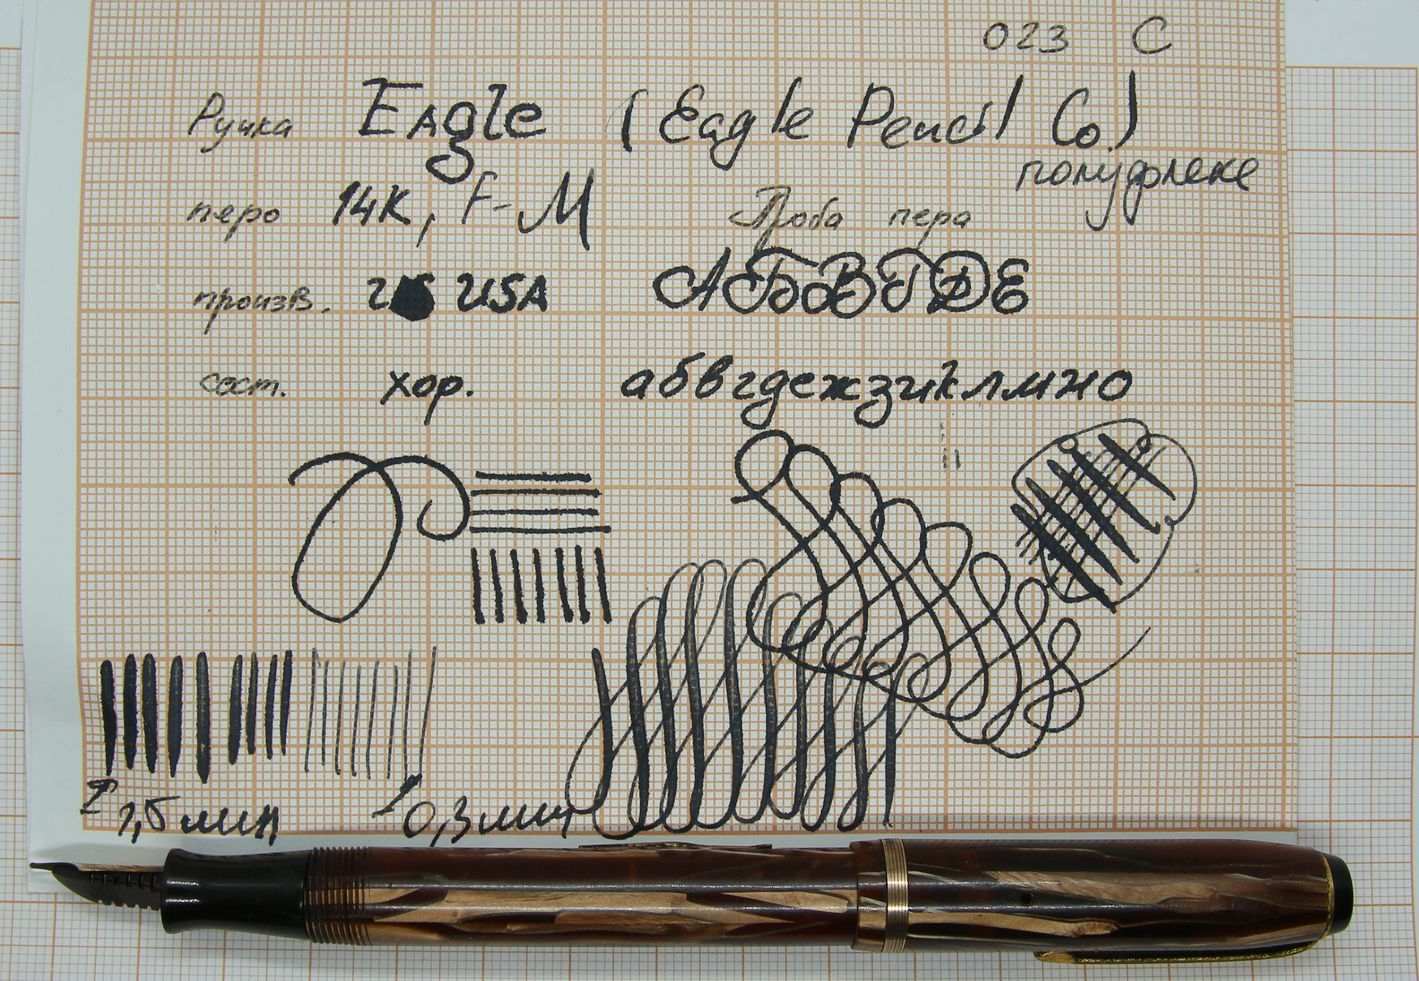 023 С
Ручка Eagle (Eagle Pencil Co.)
полуфлекс
перо 14K, F-M Проба пера
произв. USA АБВГДЕ
сост. хор. абвгдежзиклмно
0,3 мин